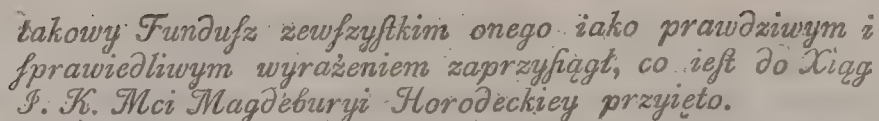 takowy Funduſz zewſzyſtkim onego iako prawdziwym i
ſprawiedliwym wyrażeniem zaprzyſiągł, co ieſt do Xiąg
J. K. Mci Magdeburyi Horodeckiey przyięto.